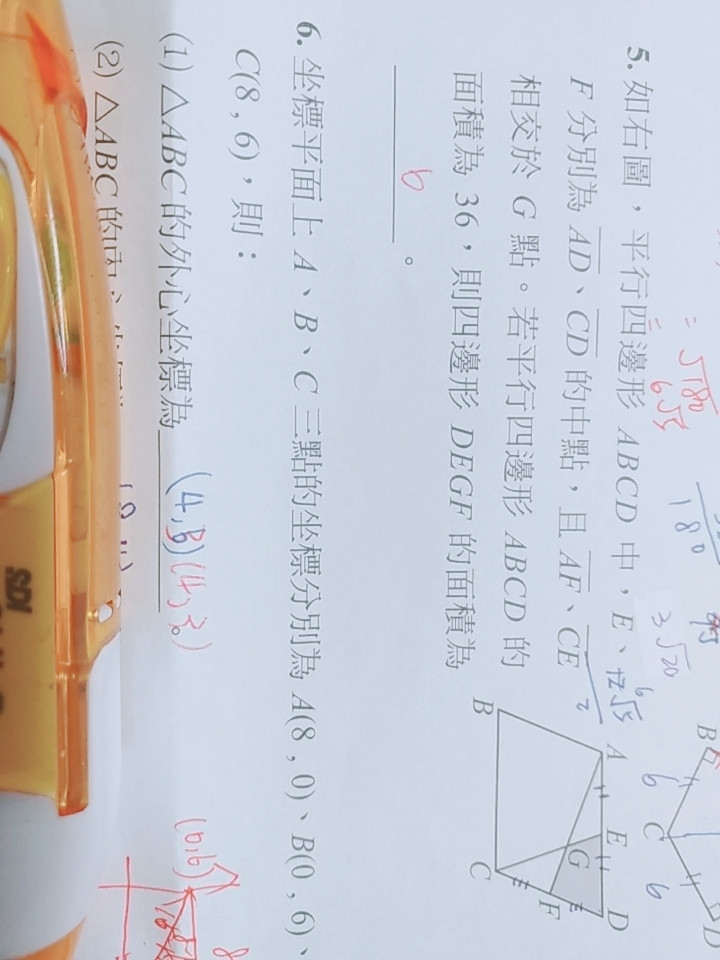 5. 如右圖，平行四邊形 ABCD 中，E、
F 分別為 AD、CD 的中點，且 AF、CE
相交於 G 點。若平行四邊形 ABCD 的
面積為 36，則四邊形 DEGF 的面積為
6 。
A E D
G
F
B C
6. 坐標平面上 A、B、C 三點的坐標分別為 A(8 , 0)、B(0 , 6)、
C(8 , 6)，則：
(1) △ABC 的外心坐標為 (4,3) 。
(2) △ABC 的
= √180
6√5
180
3√20
B
6
C
6
D
2
(0,6)
8
SDI